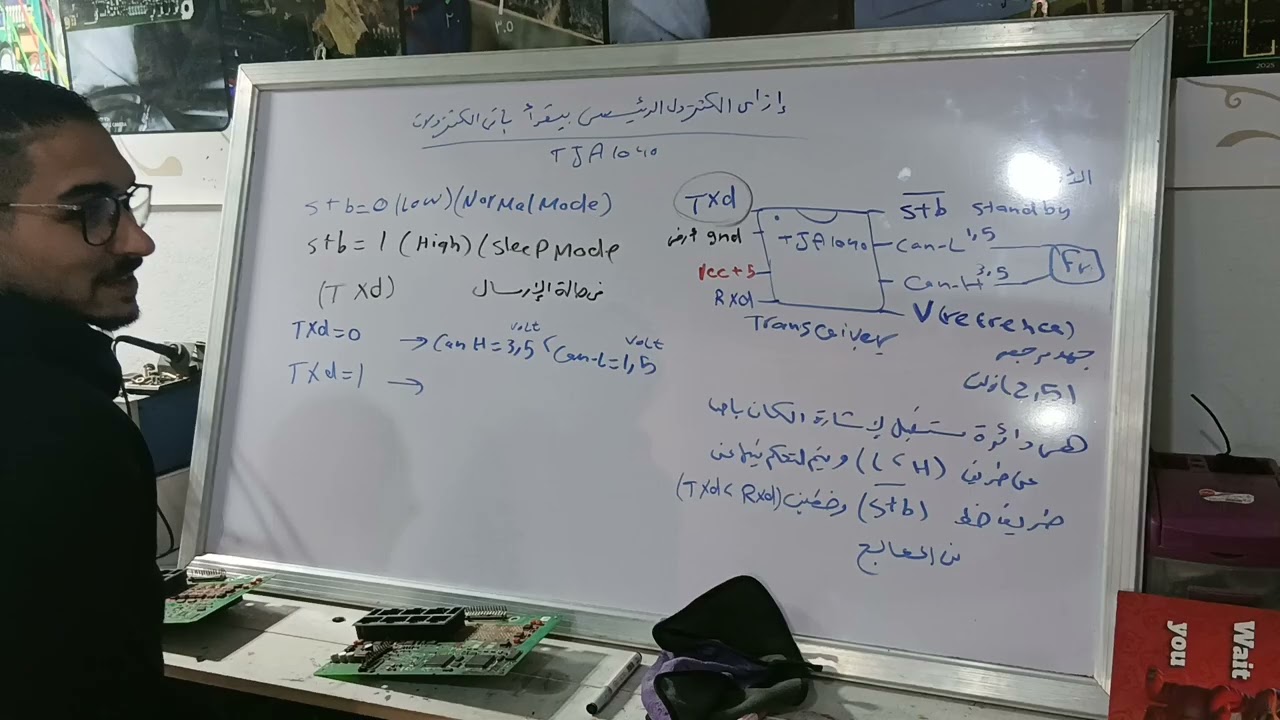 إزاى الكنترول الرئيسى بيقرأ باقى الكنترولات
TJA1040
stb=0 (Low) (Normal Mode)
stb=1 (High) (Sleep Mode
(Txd) فى حالة الإرسال
Txd=0 → CanH=3,5 volt , Can-L=1,5 volt
Txd=1 →
Txd
gnd
Vcc+5
Rxd
TJA1040
stb standby
Can-L 1,5
Can-H 3,5
Fr
V(refrence)
Transcaiver
جهد مرجعى
(2,5)
هى دائرة مستقبل لإشارة الكان باص
عن طريق (L < H) و يتم التحكم فيها عن
طريق خط (stb) وخطين (Txd < Rxd)
من المعالج
Wait
you